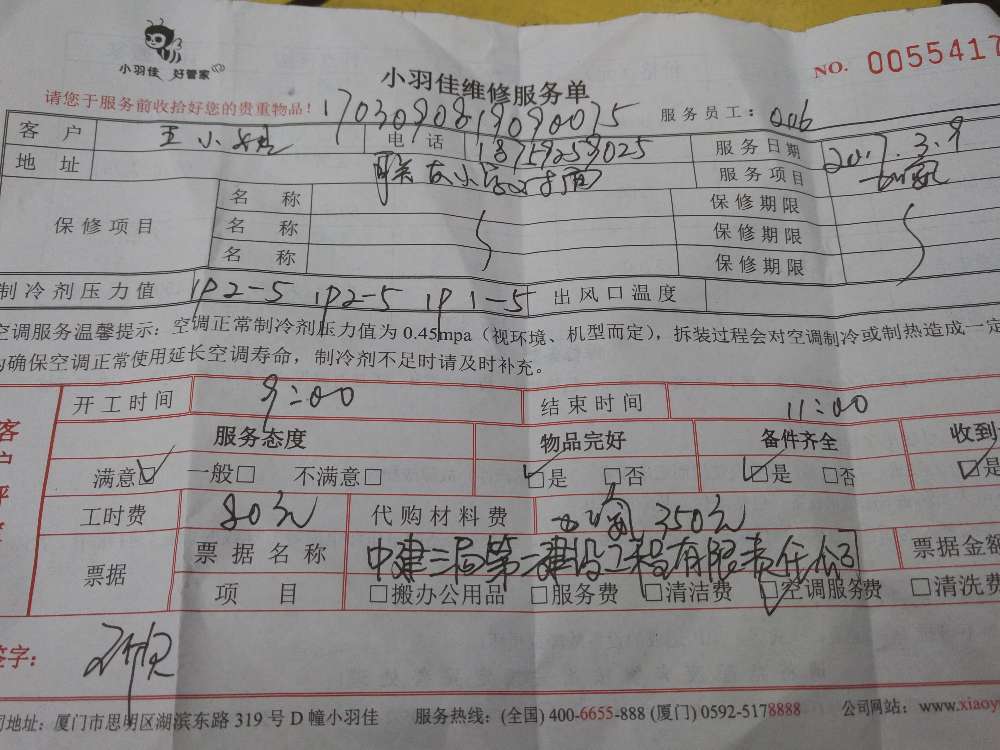 小羽佳 好管家
小羽佳维修服务单
NO. 0055417
请您于服务前收拾好您的贵重物品！
1703090819090075
服务员工：
客 户 王小 电 话 18759259025 服务日期 2017.3.9
地 址 服务项目
保修项目 名 称 保修期限
名 称 保修期限
名 称 保修期限
制冷剂压力值 1P2-5 1P2-5 1P1-5 出风口温度
空调服务温馨提示：空调正常制冷剂压力值为 0.45mpa（视环境、机型而定），拆装过程会对空调制冷或制热造成一定
确保空调正常使用延长空调寿命，制冷剂不足时请及时补充。
开工时间 9:00 结束时间 11:00
客户评
服务态度 物品完好 备件齐全 收到
满意☑ 一般□ 不满意□ ☑是 □否 ☑是 □否 ☑是
工时费 80元 代购材料费 350元
票据 票据名称 中建三局第一建设工程有限责任公司 票据金额
项 目 □搬办公用品 □服务费 □清洁费 ☑空调服务费 □清洗费
签字：
司地址：厦门市思明区湖滨东路 319 号 D 幢小羽佳 服务热线：(全国) 400-6655-888 (厦门) 0592-5178888 公司网站：www.xiaoy